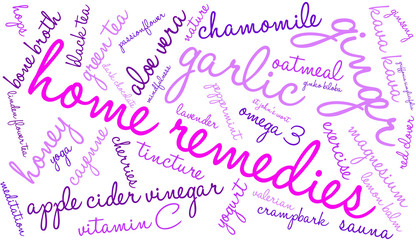 hops
bone broth
black tea
green tea
passionflower
dark chocolate
aloe vera
mindfulness
nature
chamomile
garlic
oatmeal
ginko biloba
ginger
kava kava
ginseng
red clover
linden flower tea
home remedies
honey
yoga
cayenne
cherries
lavender
peppermint
st john's wort
omega 3
exercise
magnesium
lemon balm
meditation
tincture
apple cider vinegar
vitamin C
yogurt
valerian
crampbark
sauna